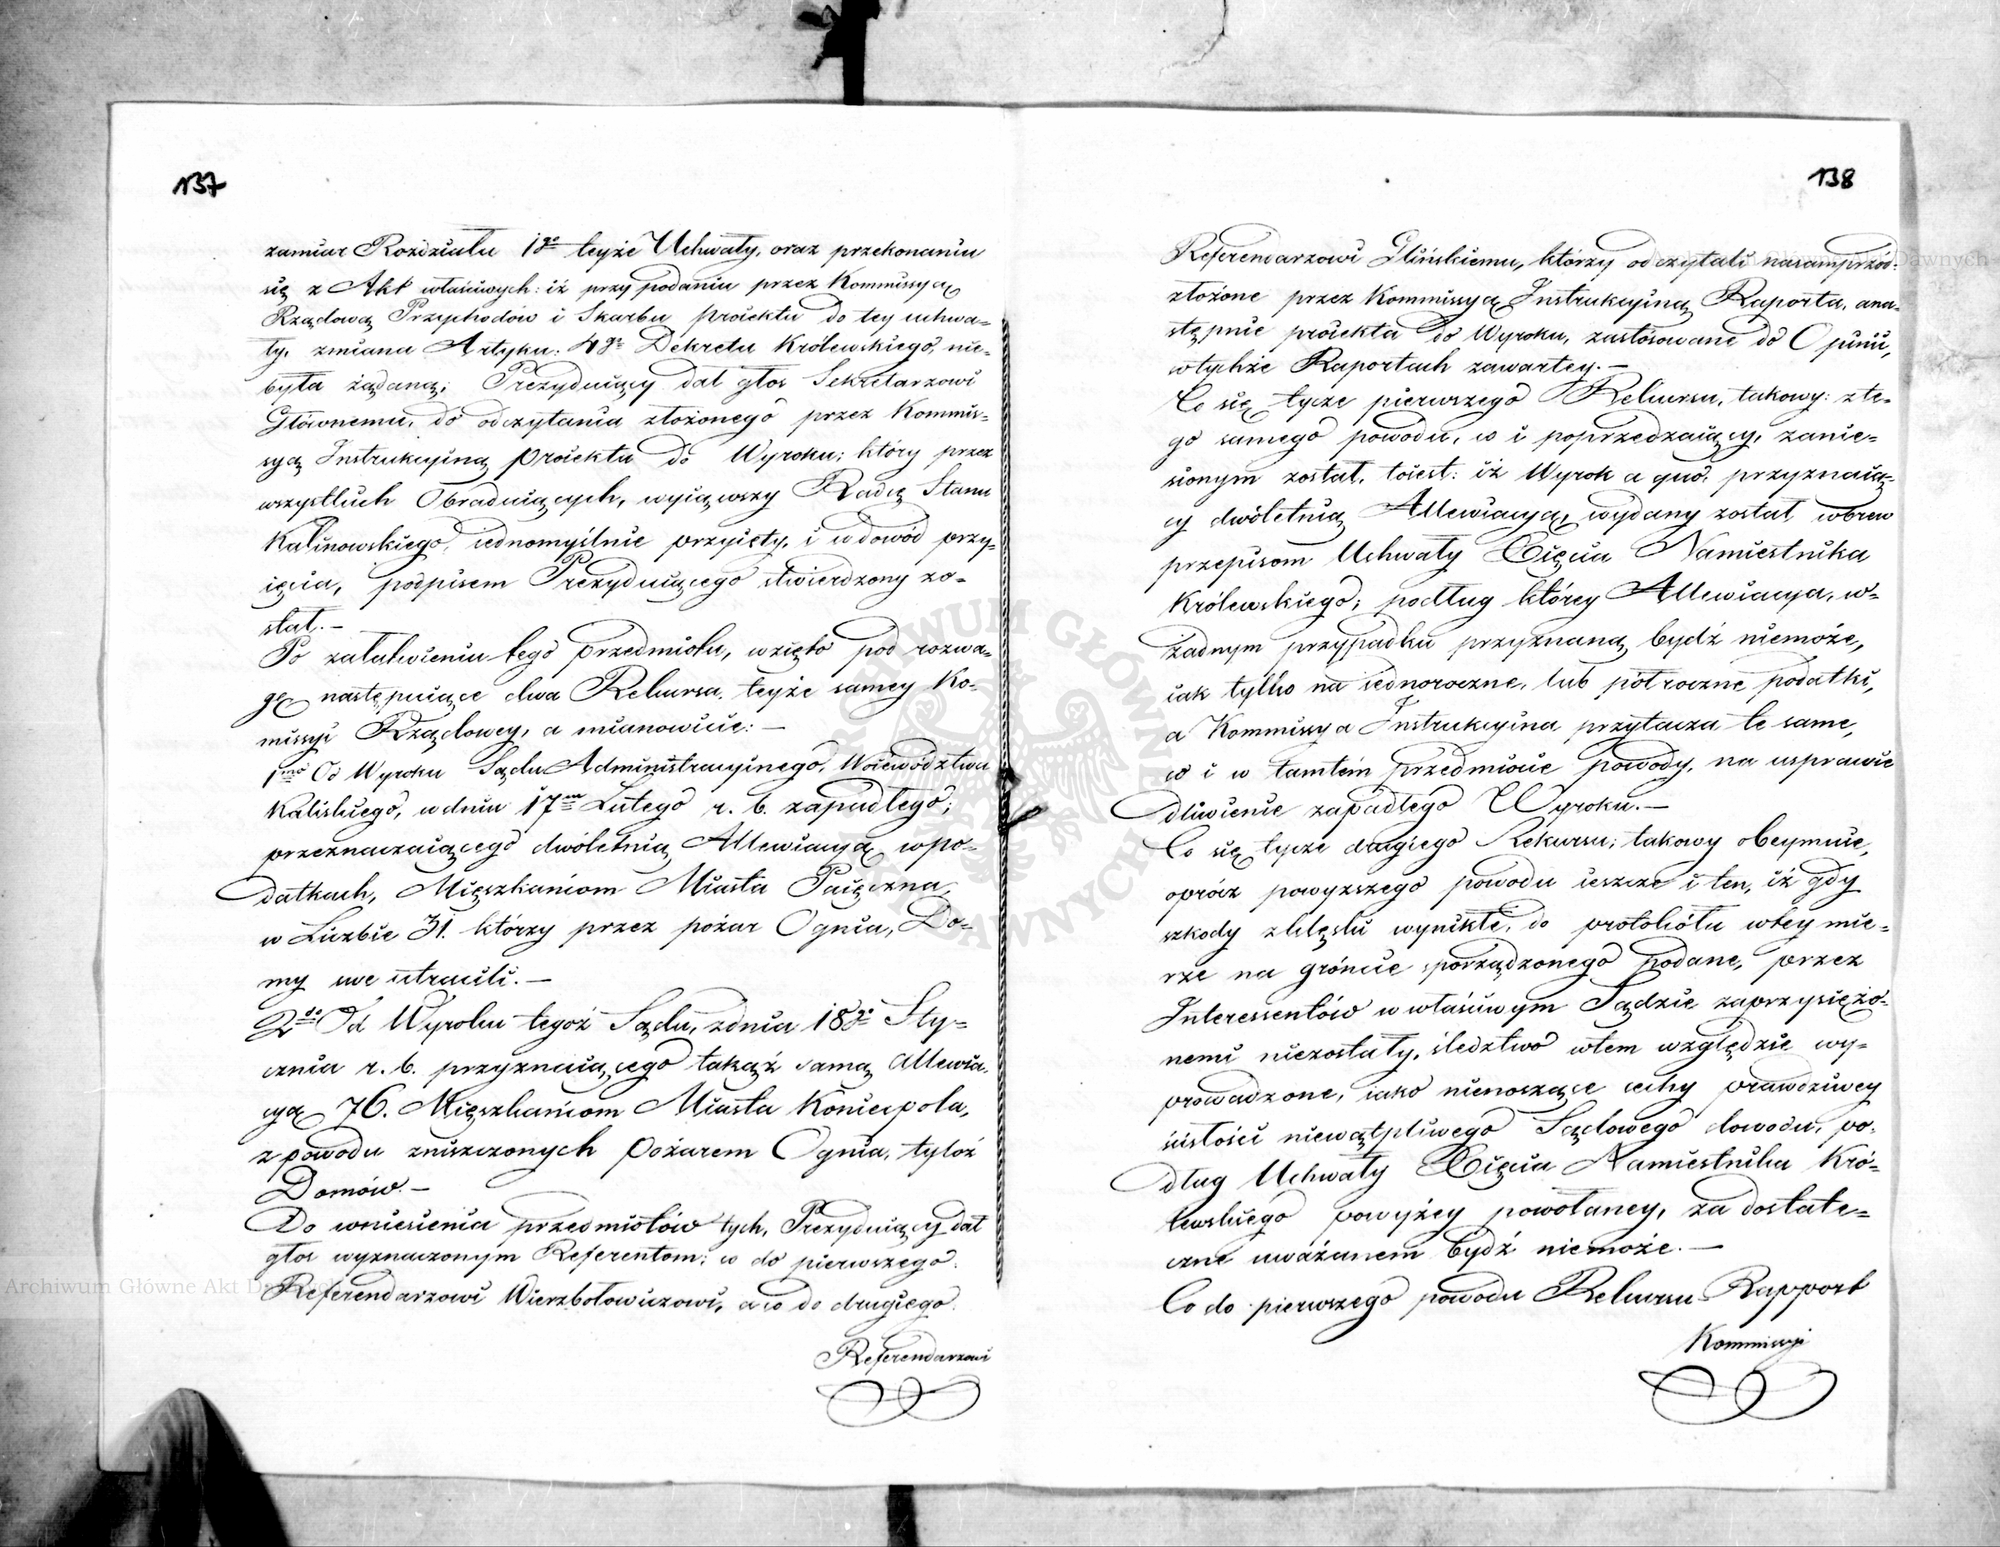 137
zamiar Rozdziału 1go teyże Uchwały, oraz przekonaniu
się z Akt właściwych: iż przy podaniu przez Kommissyą
Rządową Przychodów i Skarbu proiektu do tey uchwa=
ły, zmiana Artyku: 4go Dekretu Królewskiego, nie=
była żądaną; Prezyduiący dał głos Sekretarzowi
Głównemu, do odczytania złożonego przez Kommis=
syą Instrukcyiną proiektu do Wyroku; który przez
wszystkich Obraduiących, wyiąwszy Radcę Stanu
Kalinowskiego, iednomyślnie przyięty, i w dowód przy=
ięcia, podpisem Prezyduiącego stwierdzony zo=
stał.—
Po załatwieniu tego przedmiotu, wzięto pod rozwa=
gę następuiące dwa Rekursa teyże samey Ko=
missyi Rządowey, a mianowicie:—
1mo Od Wyroku Sądu Administracyinego, Woiewództwa
Kaliskiego, w dniu 17m Lutego r. b. zapadłego;
przeznaczaiącego dwóletnią Allewiacyą w po=
datkach, Mięszkańcom Miasta Paięczna,
w Liczbie 31. którzy przez pożar Ognia, Do=
my swe utracili.—
2do Od Wyroku tegoż Sądu, z dnia 18go Sty=
cznia r. b. przyznaiącego takąż samą Allewia=
cyą 76. Mięszkańcom Miasta Koniecpola,
z powodu zniszczonych pożarem Ognia, tyloż
Domów.—
Do wniesienia przedmiotów tych, Prezyduiący dał
głos wyznaczonym Referentom; co do pierwszego
Referendarzowi Wierzbołowiczowi, a co do drugiego
Referendarzowi
138
Referendarzowi Glińskiemu, którzy odczytali nasamprzód=
złożone przez Kommissyą Instrukcyiną Raporta, ana=
stępnie proiekta do Wyroku, zastósowane do Opinii,
w tychże Raportach zawartey.—
Co się tycze pierwszego Rekursu, takowy: z te=
go samego powodu, co i poprzedzaiący, zanie=
sionym został, toiest: iż Wyrok a quo, przyznaią=
cy dwóletnią Allewiacyą, wydany został wbrew
przepisom Uchwały Xięcia Namiestnika
Królewskiego; podług którey Allewiacya, w=
żadnym przypadku przyznaną bydź niemoże,
iak tylko na iednoroczne, lub półroczne podatki,
a Kommissya Instrukcyina przytacza te same,
co i w tamtém przedmiocie powody, na usprawie
dliwienie zapadłego Wyroku.—
Co się tycze drugiego Rekursu; takowy obeymuie,
oprócz powyższego powodu ieszcze i ten, iż gdy
szkody z klęski wynikłe, do protokółu w tey mie=
rze na gróncie sporządzonego podane, przez
Interessentów w właściwym Sądzie zaprzysiężo=
nemi niezostały, śledztwo w tem względzie wy=
prowadzone, iako nienoszące cechy prawdziwey
ścisłości niewątpliwego Sądowego dowodu, po=
dług Uchwały Xięcia Namiestnika Kró=
lewskiego powyżey powołaney, za dostate=
czne uważanem bydź niemoże.—
Co do pierwszego powodu Rekursu Rapport
Kommissyi
Archiwum Główne Akt Dawnych
ARCHIWUM GŁÓWNE AKT DAWNYCH